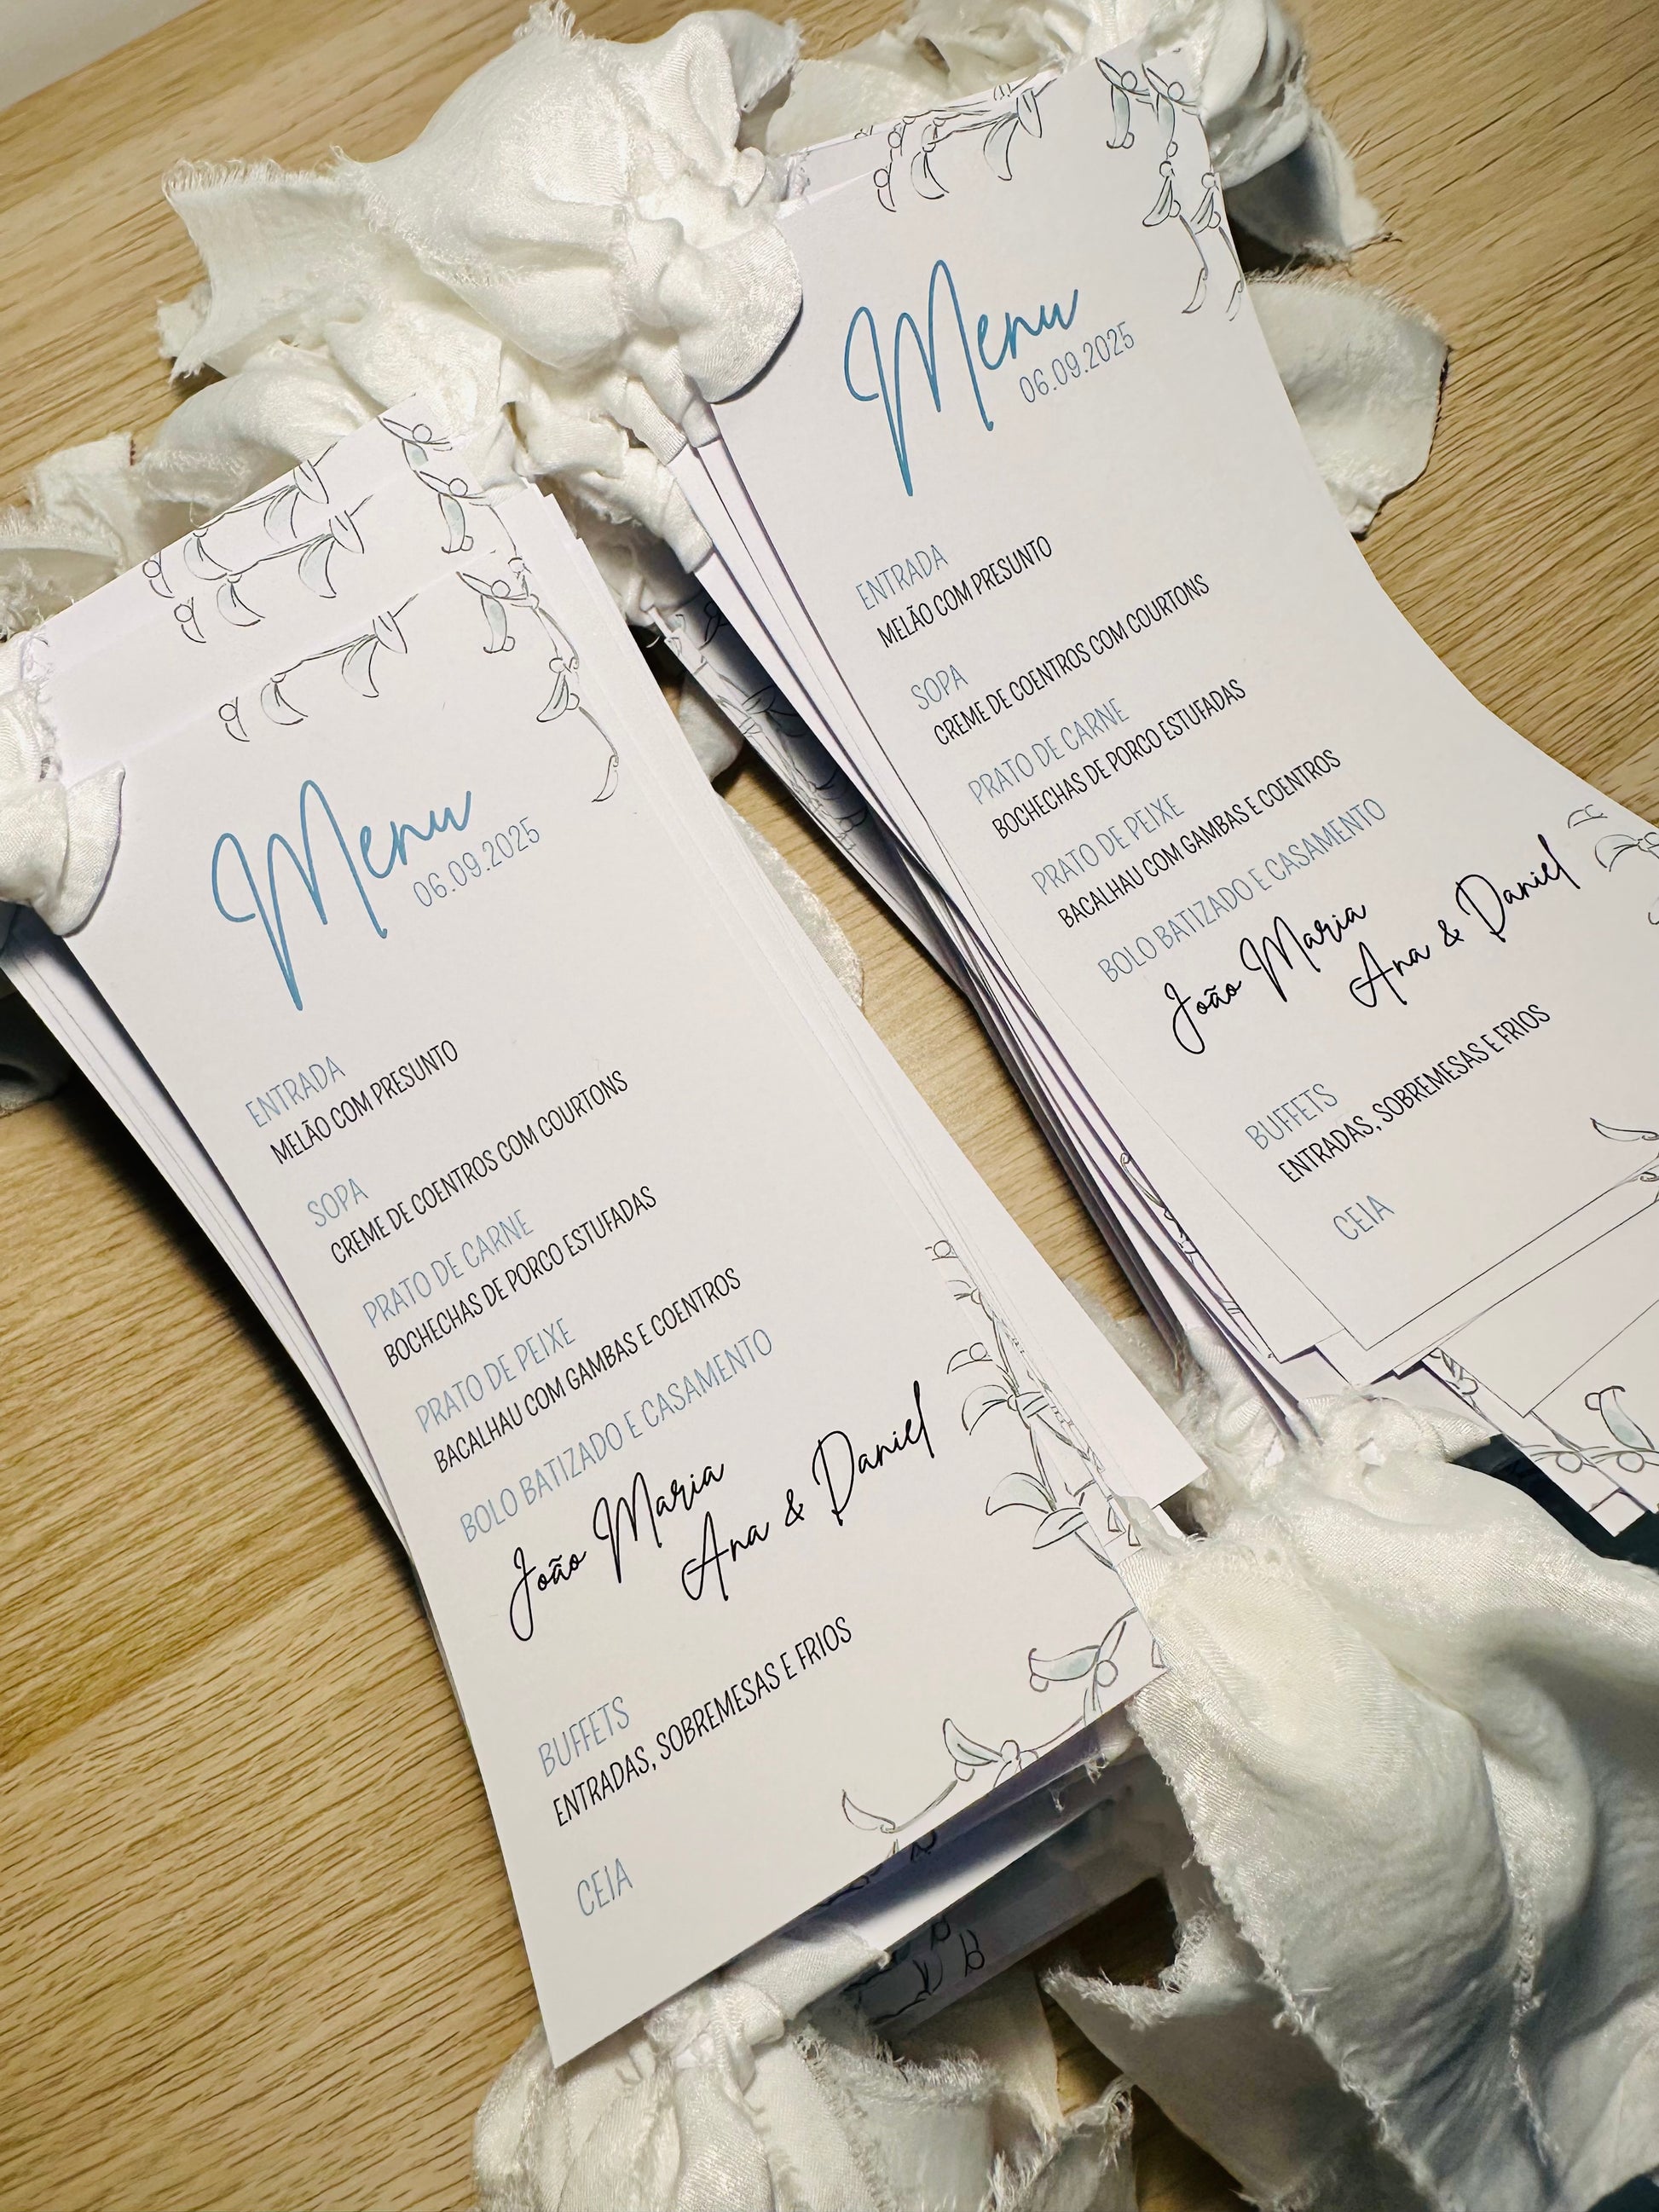 Menu
06.09.2025
ENTRADA
MELÃO COM PRESUNTO
SOPA
CREME DE COENTROS COM COURTONS
PRATO DE CARNE
BOCHECHAS DE PORCO ESTUFADAS
PRATO DE PEIXE
BACALHAU COM GAMBAS E COENTROS
BOLO BATIZADO E CASAMENTO
João Maria
Ana & Daniel
BUFFETS
ENTRADAS, SOBREMESAS E FRIOS
CEIA
Menu
06.09.2025
ENTRADA
MELÃO COM PRESUNTO
SOPA
CREME DE COENTROS COM COURTONS
PRATO DE CARNE
BOCHECHAS DE PORCO ESTUFADAS
PRATO DE PEIXE
BACALHAU COM GAMBAS E COENTROS
BOLO BATIZADO E CASAMENTO
João Maria
Ana & Daniel
BUFFETS
ENTRADAS, SOBREMESAS E FRIOS
CEIA